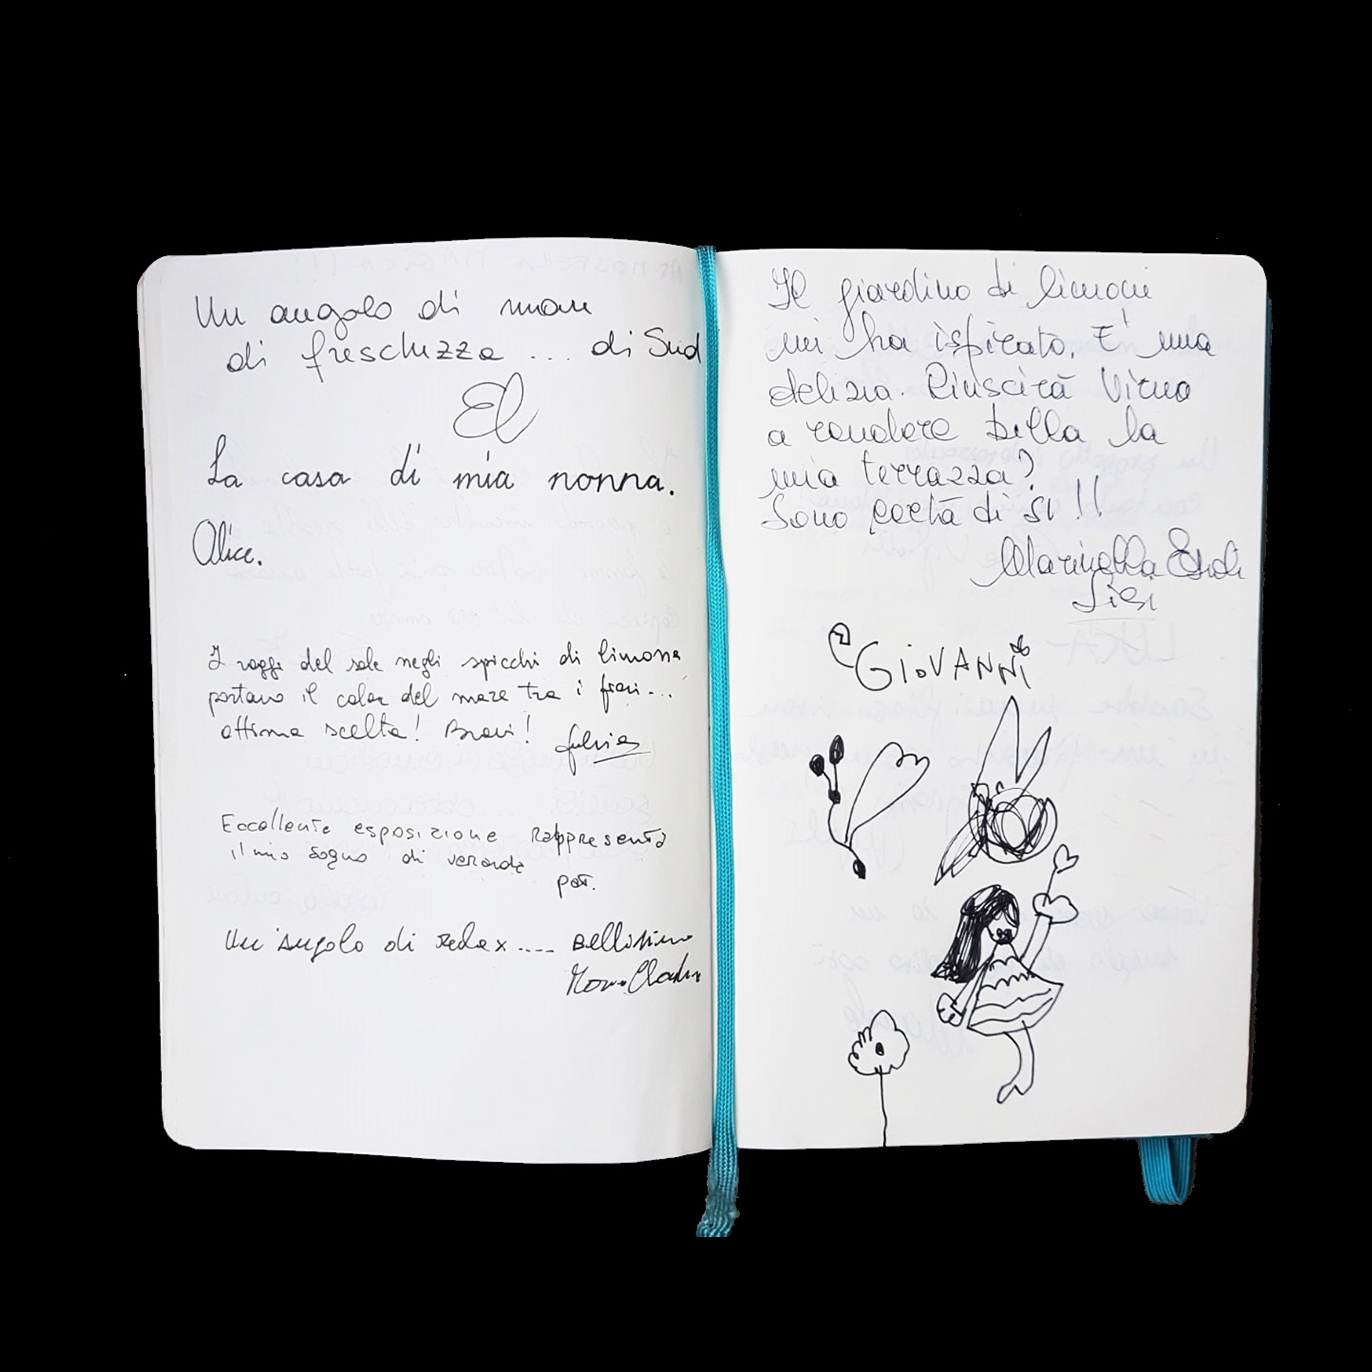 Un angolo di mare
di freschezza ... di Sud
El
La casa di mia nonna.
Alice.
I raggi del sole negli spicchi di limone
portano il color del mare tra i fiori...
ottima scelta! Bravi!
Fulvia
Eccellente esposizione rappresenta
il mio sogno di veranda
pat.
Un angolo di relax.... Bellissimo
Il giardino di limoni
mi ha ispirato. E' una
delizia. Riuscirà Virno
a rendere bella la
mia terrazza?
Sono certa di si!!
Marinella
GiOVANNi